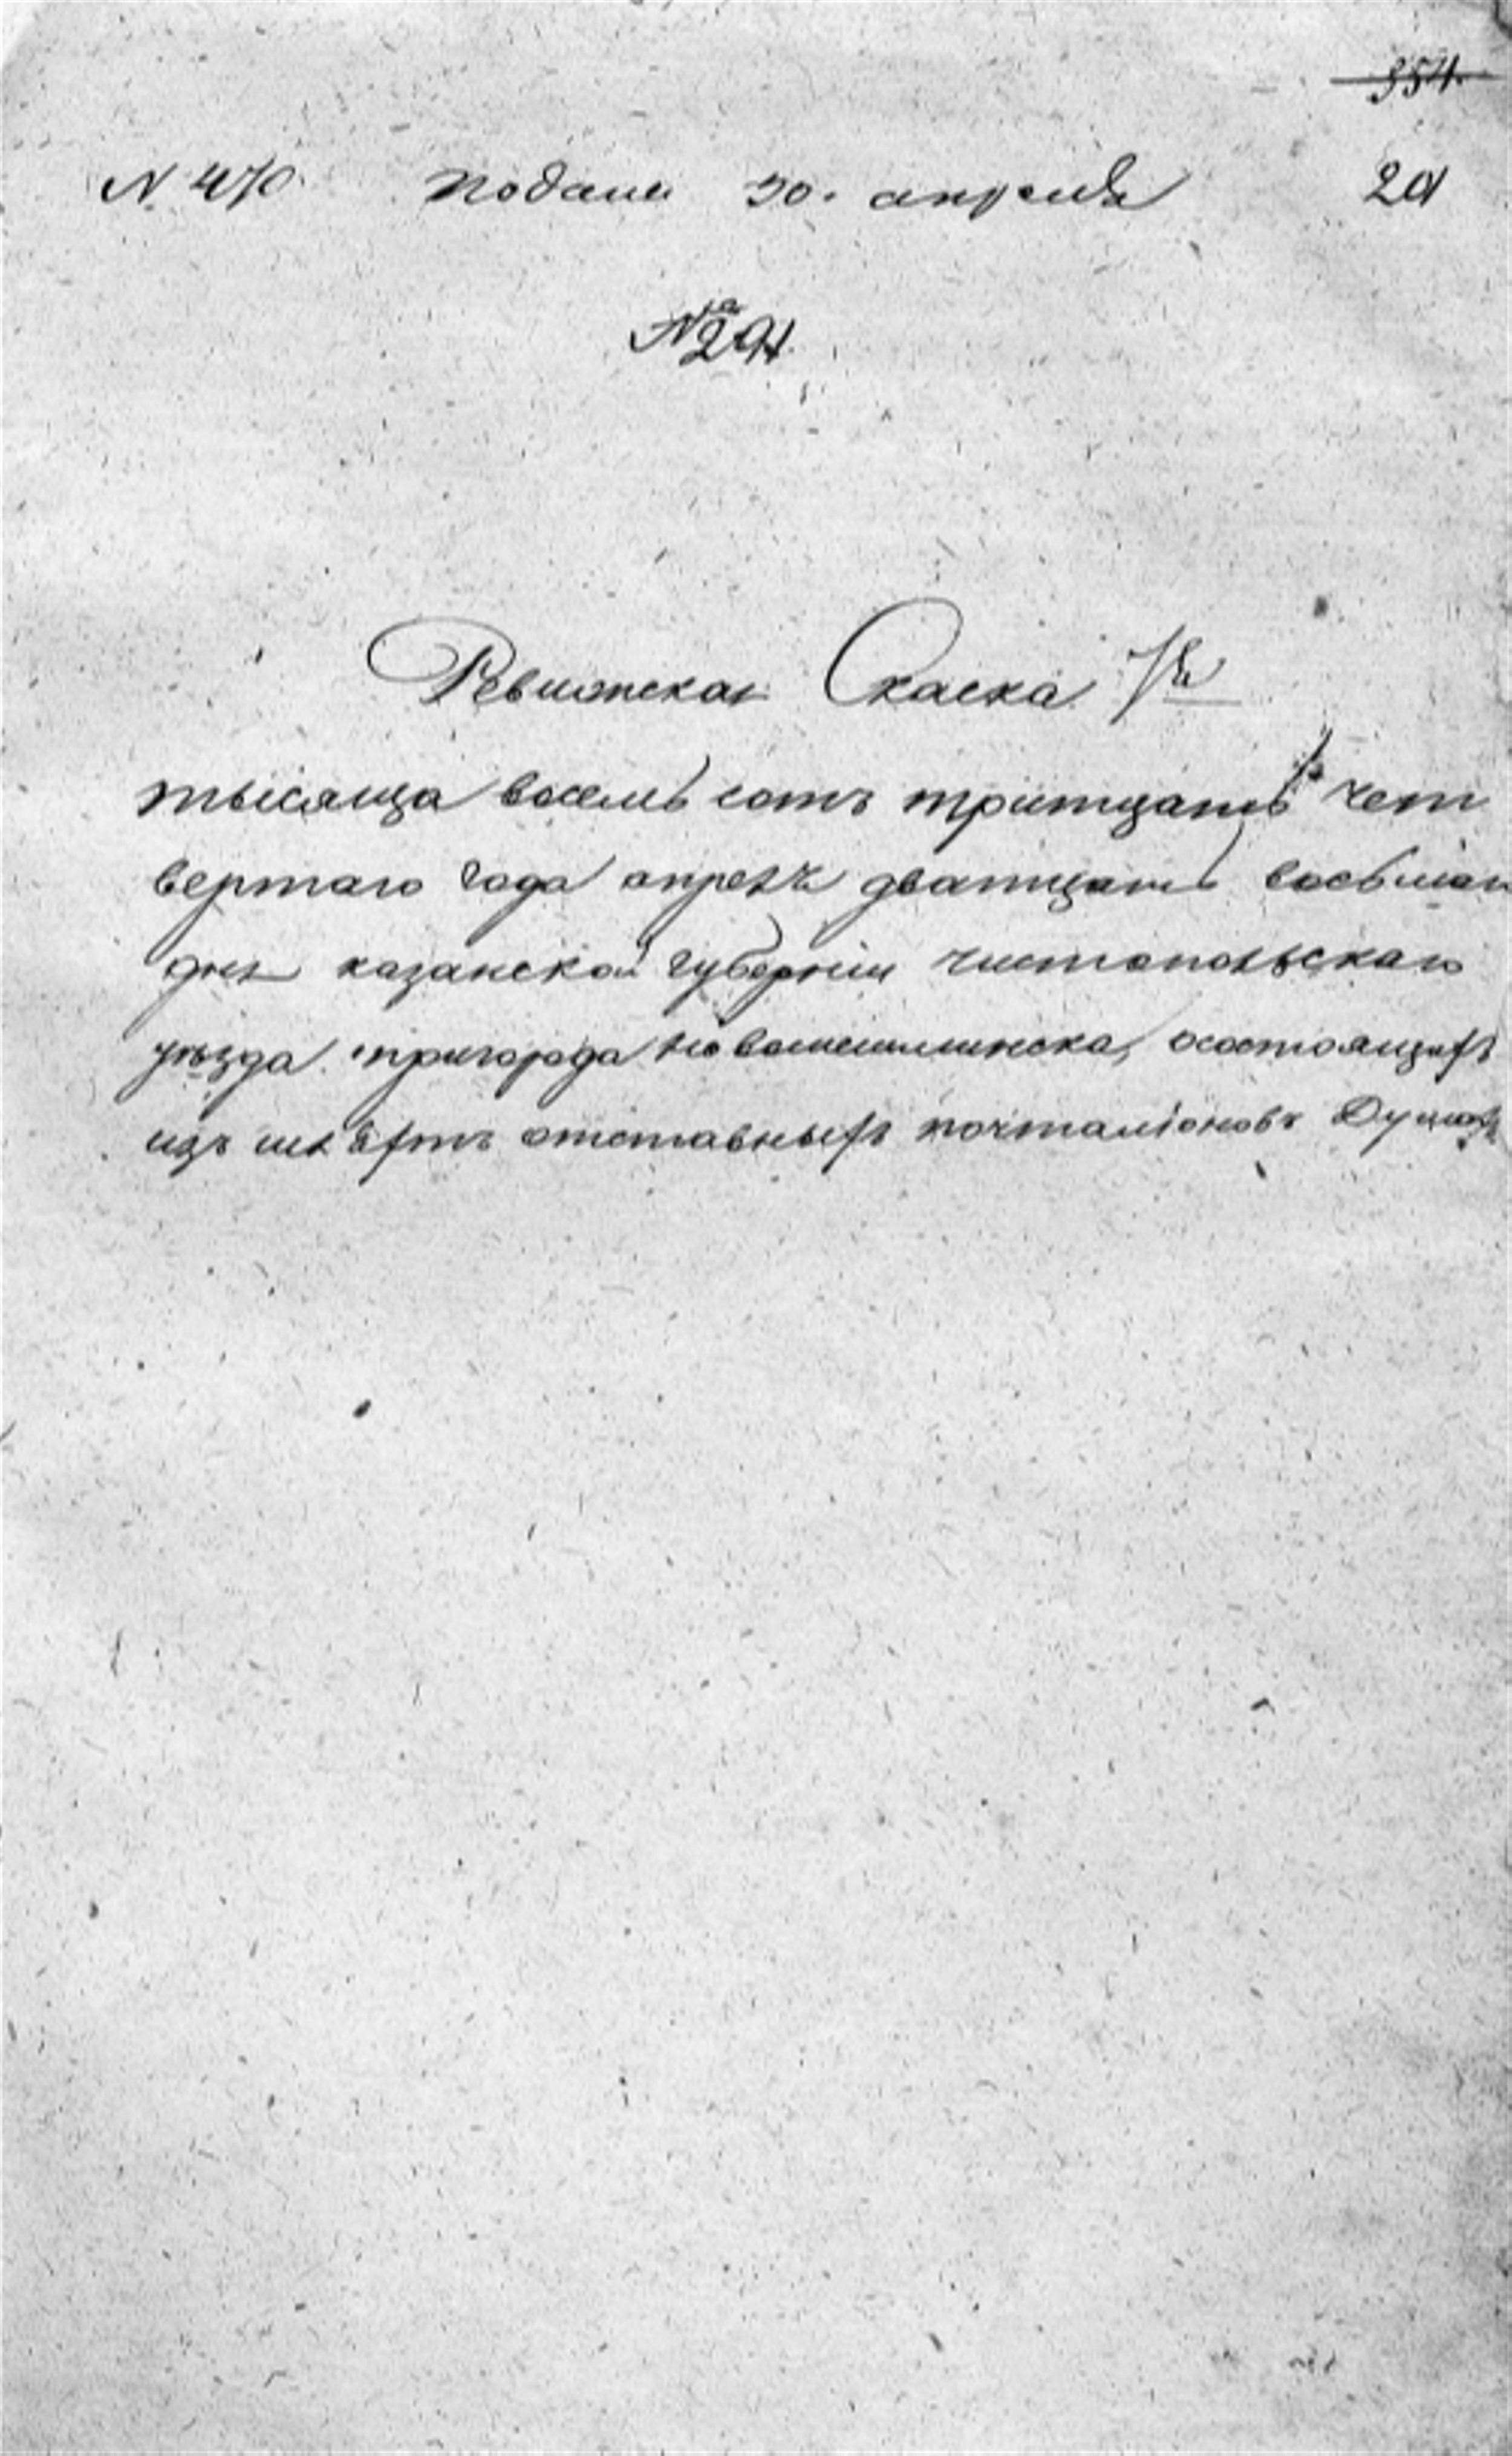 354.
N 470. подана 30. апреля 20
№ 291.
Ревижская Скаска
тысяща восемь сотъ тритцать чет
вертаго года апреля дватцать восьмаго
дня казанской губерніи чистопольскаго
уѣзда пригорода новошешминска, осостоящихъ
изъ отставныхъ почталіоновъ